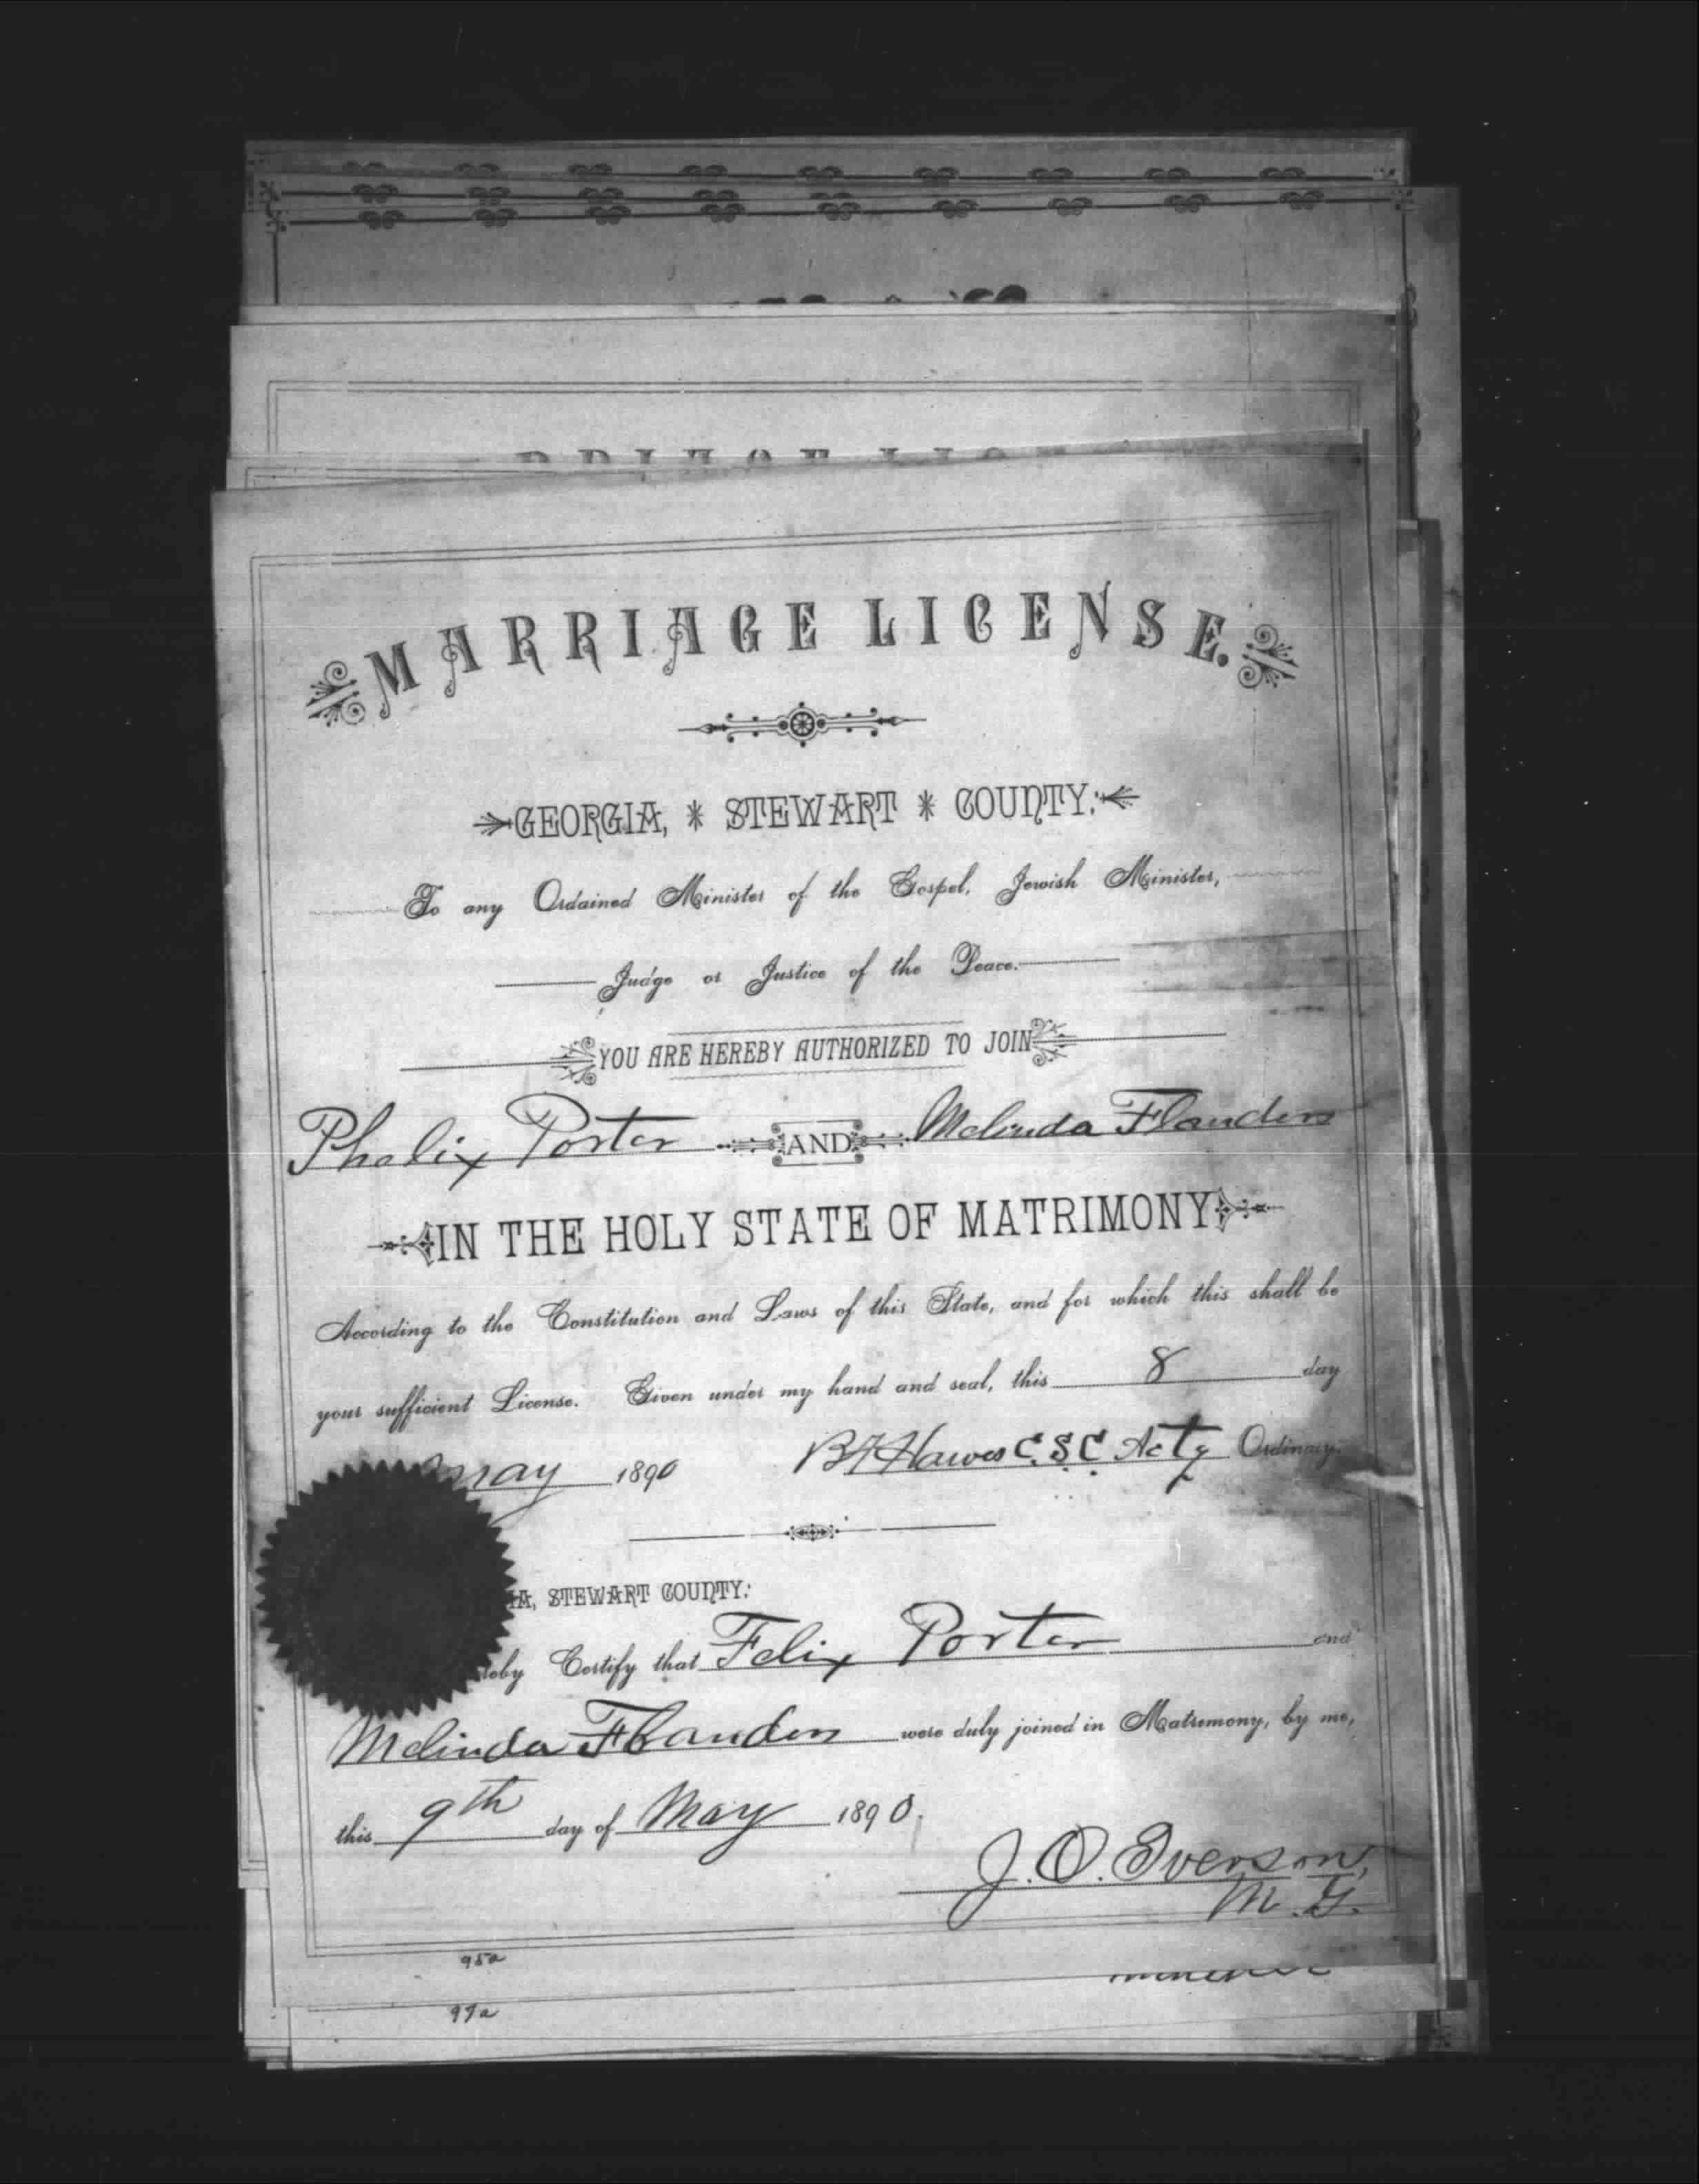 MARRIAGE LICENSE.
GEORGIA, * STEWART * COUNTY:
To any Ordained Minister of the Gospel, Jewish Minister,
Judge or Justice of the Peace.
YOU ARE HEREBY AUTHORIZED TO JOIN
Phelix Porter AND Melinda Flanders
IN THE HOLY STATE OF MATRIMONY
According to the Constitution and Laws of this State, and for which this shall be
your sufficient License. Given under my hand and seal, this 8 day
May 1890 B F Hawes C. S. C. Actg Ordinary.
IA, STEWART COUNTY:
eby Certify that Felix Porter and
Melinda Flanders were duly joined in Matrimony, by me,
this 9th day of May 1890.
J. O. Iverson,
M. G.
98a
99a